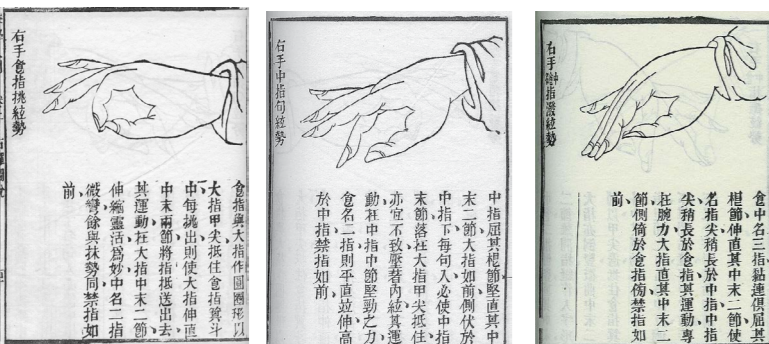 右手食指挑絃勢
食指與大指作圓圈形以
大指甲尖抵住食指箕斗
中每挑出則使大指伸直
中末兩節將指抵送出去
其運動在大指中末二節
伸縮靈活爲妙中名二指
微彎餘與抹勢同禁指如
前
右手中指句絃勢
中指屈其根節堅直其中
末二節大指如前側伏於
中指下每句入必使中指
末節落在大指甲尖抵住
亦宜不致壓著內絃其運
動在中指中節堅勁之力
食名二指則平直竝伸高
於中指禁指如前
右手指潑絃勢
食中名三指黏連俱屈其
根節伸直其中末二節使
名指尖稍長於中指中指
尖稍長於食指其運動專
在腕力大指直其中末二
節側倚於食指傍禁指如
前